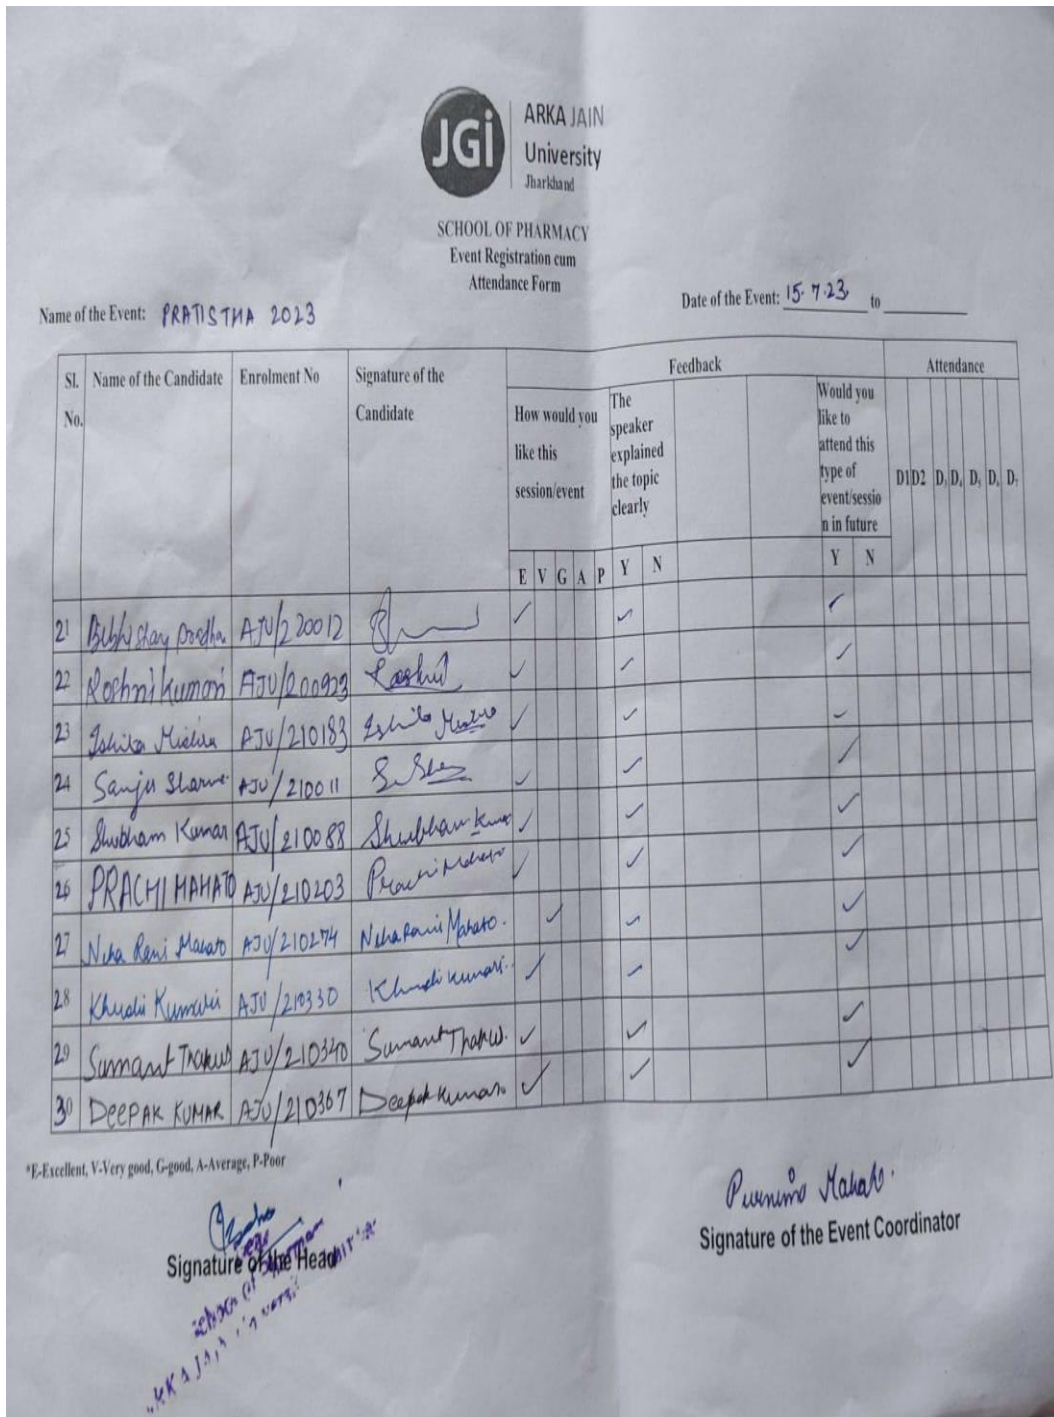 JGi
ARKA JAIN
University
Jharkhand
SCHOOL OF PHARMACY
Event Registration cum
Attendance Form
Name of the Event: PRATISTHA 2023
Date of the Event: 15.7.23 to
Sl. No. Name of the Candidate Enrolment No Signature of the Candidate Feedback Attendance
How would you like this session/event
The speaker explained the topic clearly
Would you like to attend this type of event/session in future
D1 D2 D3 D4 D5 D6 D7
E V G A P Y N Y N
21 AJU/220012 ✓ ✓ ✓
22 Roshni Kumari AJU/200923 Roshni ✓ ✓ ✓
23 Ishika Mishra AJU/210183 Ishika Mishra ✓ ✓ ✓
24 Sanju Sharma AJU/210011 ✓ ✓ ✓
25 Shubham Kumar AJU/210088 Shubham Kumar ✓ ✓ ✓
26 PRACHI MAHATO AJU/210203 Prachi Mahato ✓ ✓ ✓
27 Neha Rani Mahato AJU/210274 Neha Rani Mahato. ✓ ✓ ✓
28 Khushi Kumari AJU/210330 Khushi Kumari. ✓ ✓ ✓
29 Sumant Thakur AJU/210340 Sumant Thakur. ✓ ✓ ✓
30 DEEPAK KUMAR AJU/210367 Deepak Kumar. ✓ ✓ ✓
*E-Excellent, V-Very good, G-good, A-Average, P-Poor
Purnima Mahato.
Signature of the Head
Signature of the Event Coordinator
School of